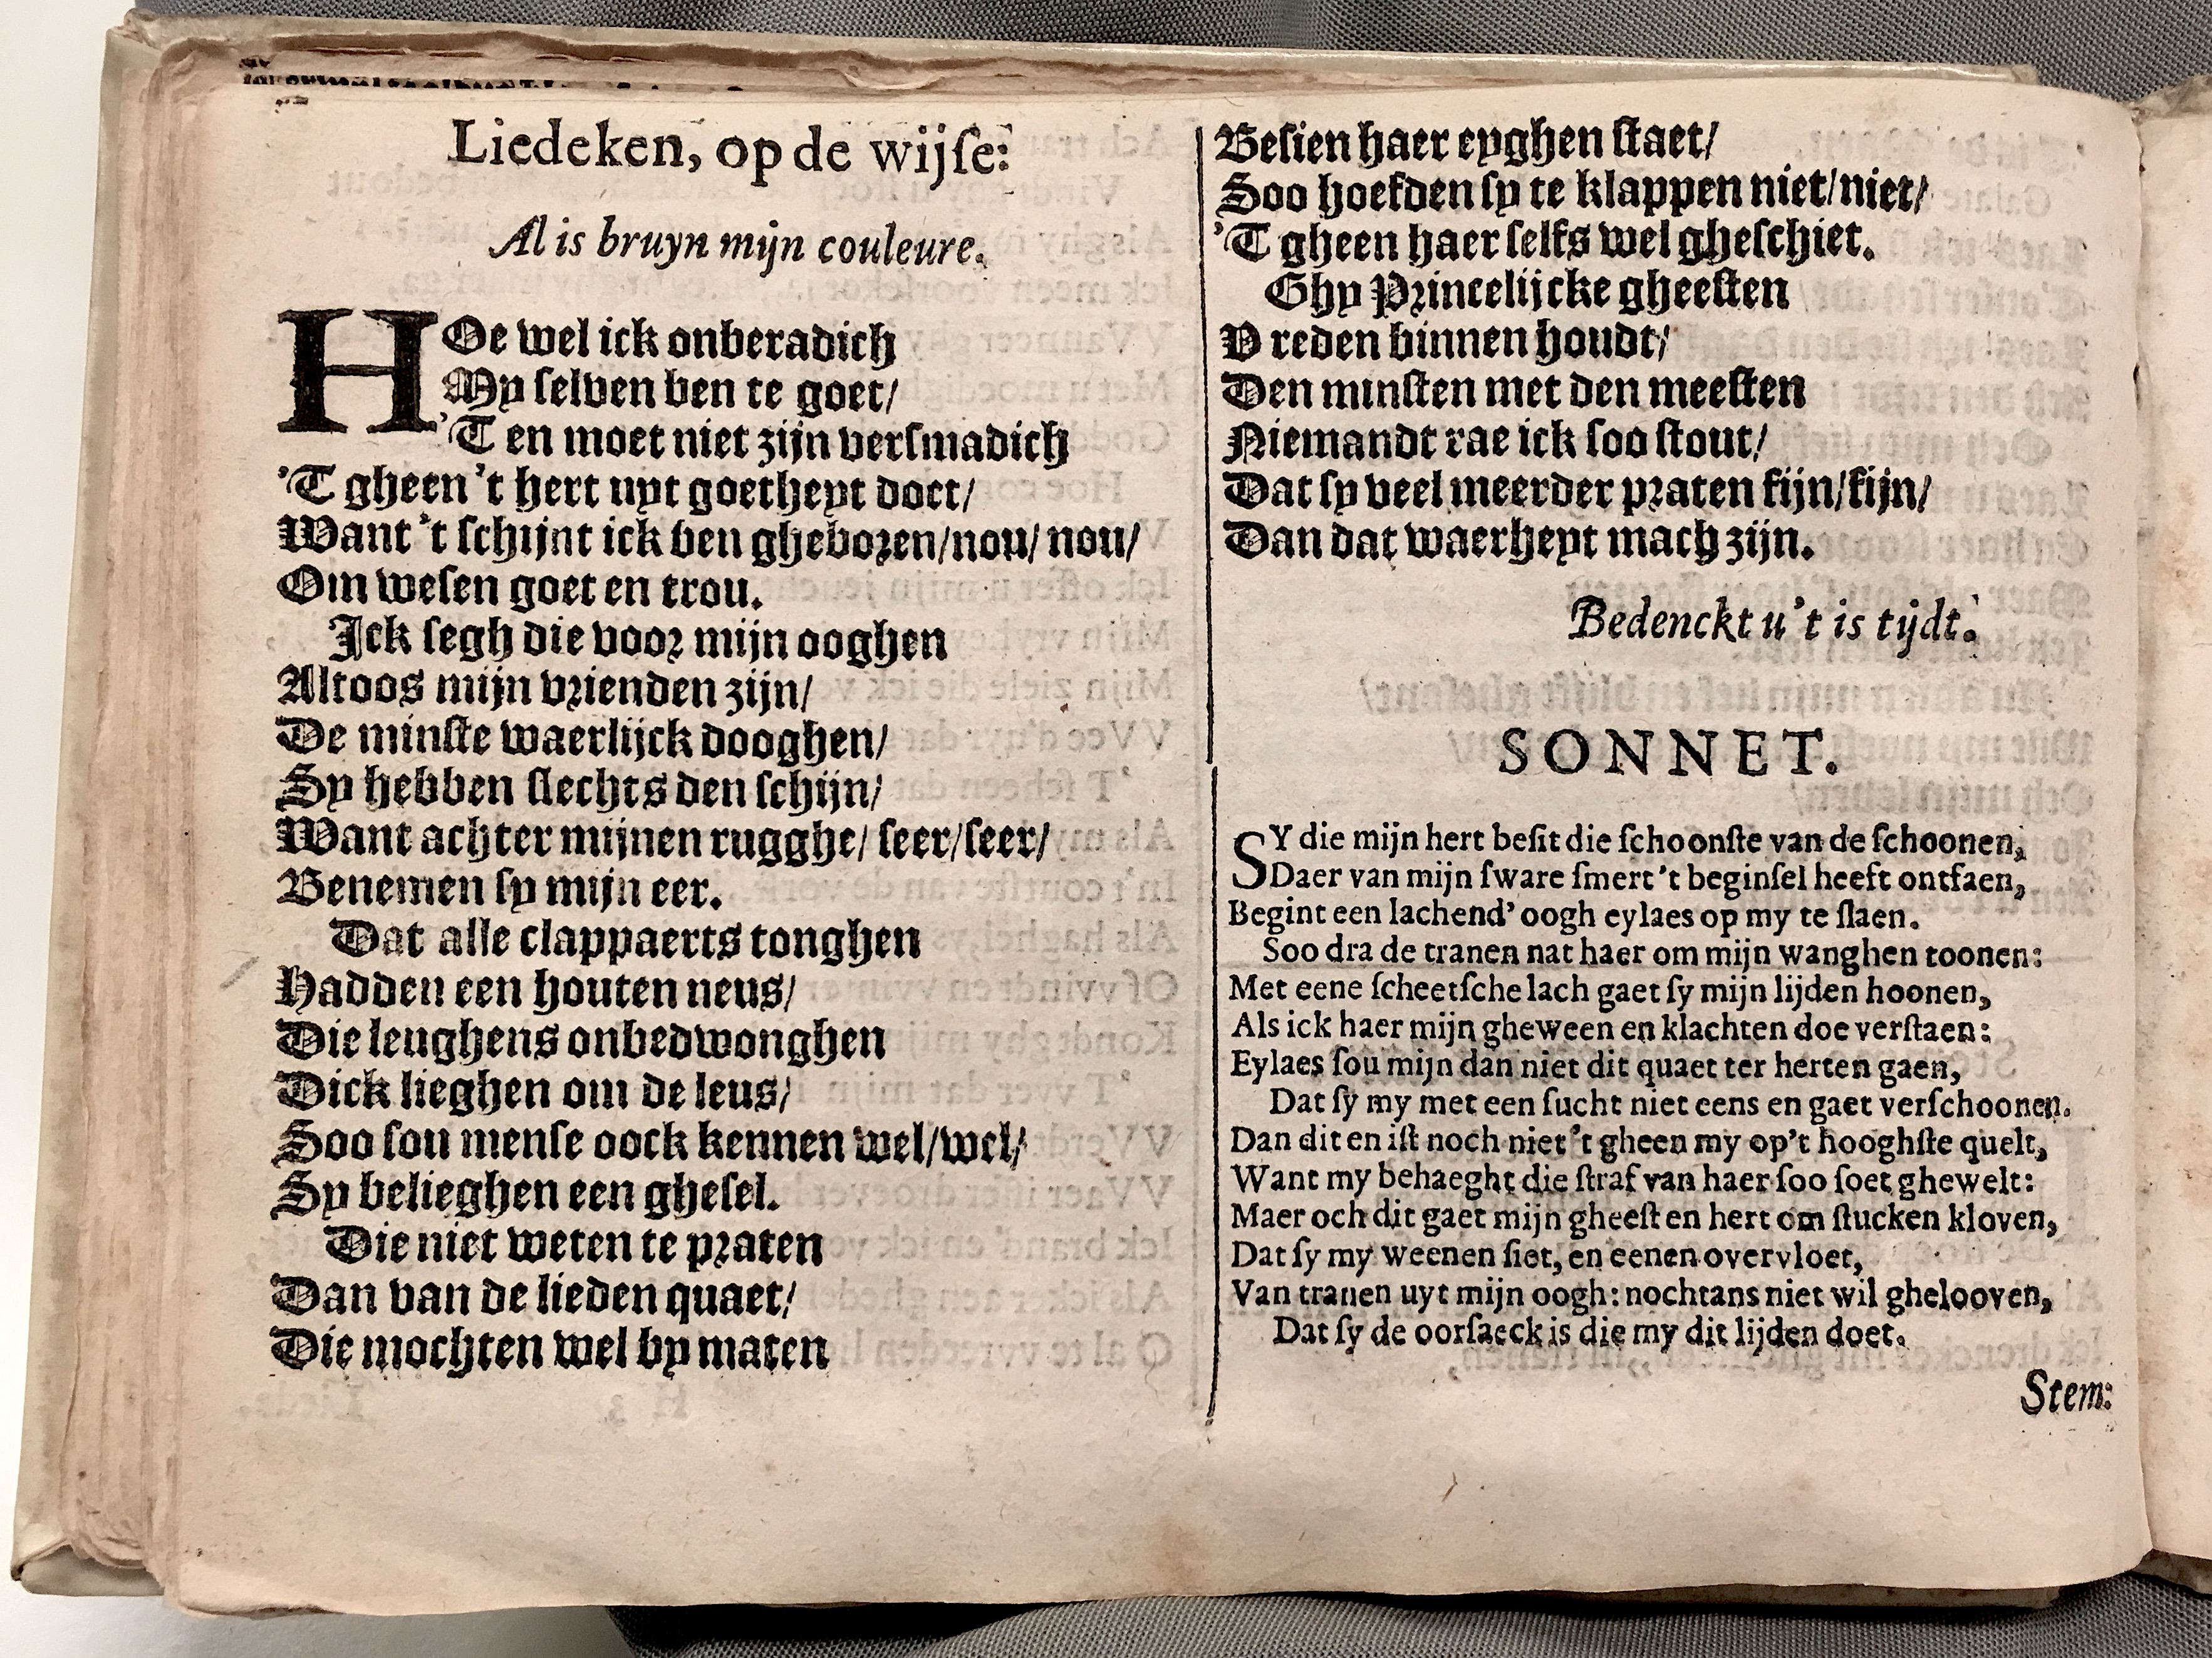 Liedeken, op de wijſe:
Al is bruyn mijn couleure.
HOe wel ick onberadich
My ſelven ben te goet/
'T en moet niet zijn verſmadich
'T gheen 't hert uyt goetheyt doet/
Want 't ſchijnt ick ben gheboren/nou/ nou/
Om weſen goet en trou.
Ick ſegh die voor mijn ooghen
Altoos mijn vrienden zijn/
De minſte waerlijck dooghen/
Sy hebben ſlechts den ſchijn/
Want achter mijnen rugghe/ ſeer/ſeer/
Benemen ſy mijn eer.
Dat alle clappaerts tonghen
Hadden een houten neus/
Die leughens onbedwonghen
Dick lieghen om de leus/
Soo ſou menſe oock kennen wel/wel/
Sy belieghen een gheſel.
Die niet weten te praten
Dan van de lieden quaet/
Die mochten wel by maten
Beſien haer eyghen ſtaet/
Soo hoefden ſy te klappen niet/niet/
'T gheen haer ſelfs wel gheſchiet.
Ghy Princelijcke gheeſten
V reden binnen houdt/
Den minſten met den meeſten
Niemandt rae ick ſoo ſtout/
Dat ſy veel meerder praten fijn/fijn/
Dan dat waerheyt mach zijn.
Bedenckt u 't is tijdt.
SONNET.
SY die mijn hert beſit die ſchoonſte van de ſchoonen,
Daer van mijn ſware ſmert 't beginſel heeft ontfaen,
Begint een lachend' oogh eylaes op my te ſlaen.
Soo dra de tranen nat haer om mijn wanghen toonen:
Met eene ſcheetſche lach gaet ſy mijn lijden hoonen,
Als ick haer mijn gheween en klachten doe verſtaen:
Eylaes ſou mijn dan niet dit quaet ter herten gaen,
Dat ſy my met een ſucht niet eens en gaet verſchoonen.
Dan dit en iſt noch niet 't gheen my op't hooghſte quelt,
Want my behaeght die ſtraf van haer ſoo ſoet ghewelt:
Maer och dit gaet mijn gheeſt en hert om ſtucken kloven,
Dat ſy my weenen ſiet, en eenen overvloet,
Van tranen uyt mijn oogh: nochtans niet wil ghelooven,
Dat ſy de oorſaeck is die my dit lijden doet.
Stem: